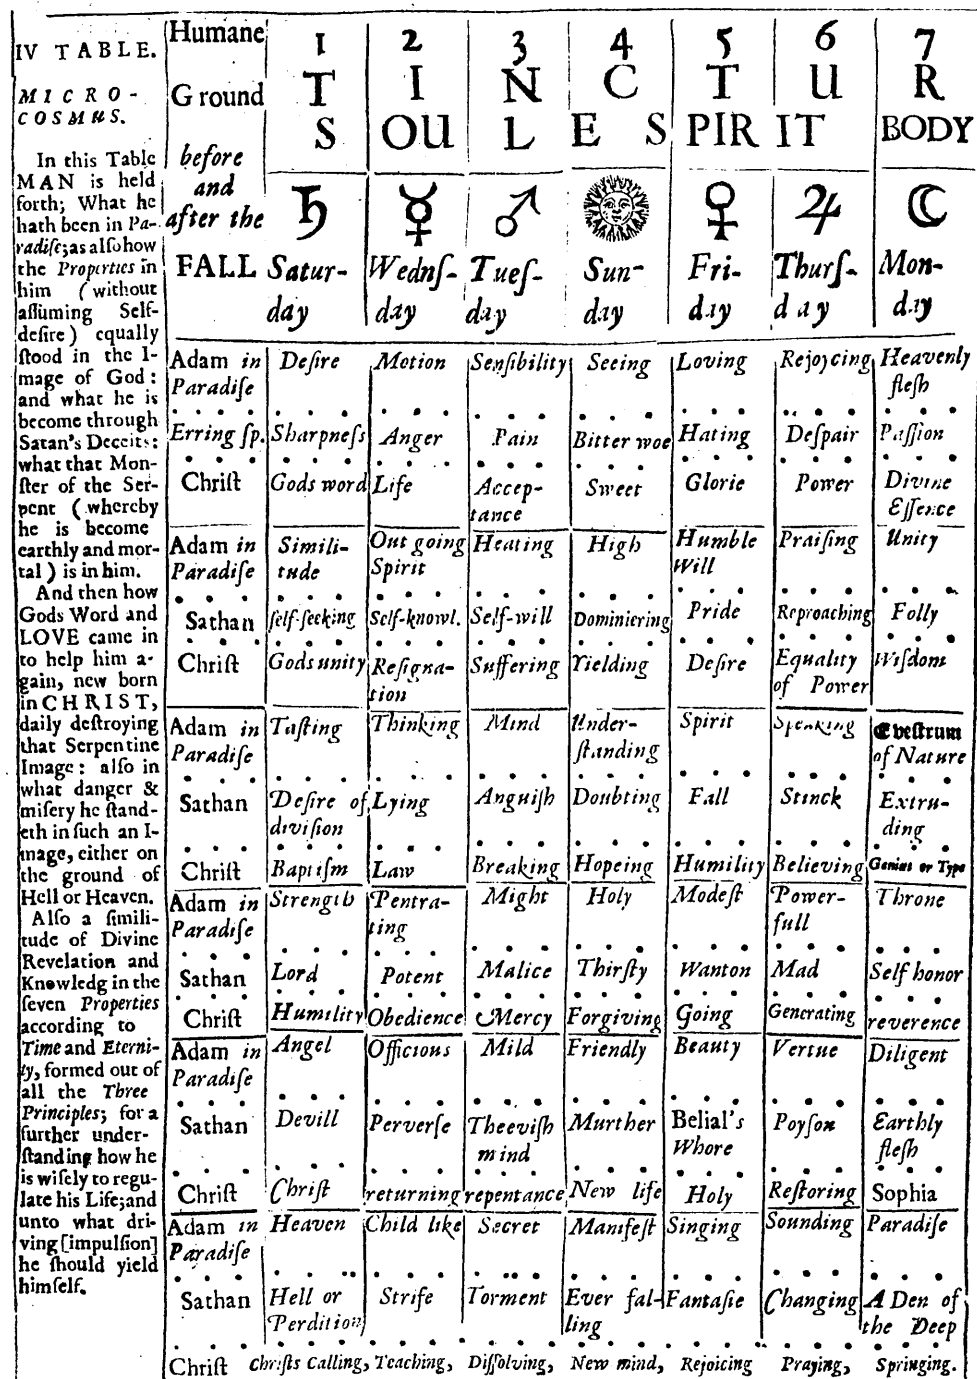 IV TABLE.
MICRO-
COSMUS.
In this Table
MAN is held
forth; What he
hath been in Pa-
radiſe; as alſo how
the Properties in
him (without
aſſuming Self-
deſire) equally
ſtood in the I-
mage of God:
and what he is
become through
Satan's Deceits:
what that Mon-
ſter of the Ser-
pent (whereby
he is become
earthly and mor-
tal) is in him.
And then how
Gods Word and
LOVE came in
to help him a-
gain, new born
in CHRIST,
daily deſtroying
that Serpentine
Image: alſo in
what danger &
miſery he ſtand-
eth in ſuch an I-
mage, either on
the ground of
Hell or Heaven.
Alſo a ſimili-
tude of Divine
Revelation and
Knowledg in the
ſeven Properties
according to
Time and Eterni-
ty, formed out of
all the Three
Principles; for a
further under-
ſtanding how he
is wiſely to regu-
late his Life; and
unto what dri-
ving [impulſion]
he ſhould yield
himſelf.
Humane 1 2 3 4 5 6 7
Ground T I N C T U R
S OU L E S PIR IT BODY
before
and
after the ♄ ☿ ♂ ☉ ♀ ♃ ☾
FALL Satur- Wednſ- Tueſ- Sun- Fri- Thurſ- Mon-
day day day day day day day
Adam in Deſire Motion Senſibility Seeing Loving Rejoycing Heavenly
Paradiſe fleſh
Erring ſp. Sharpneſs Anger Pain Bitter woe Hating Deſpair Paſſion
Chriſt Gods word Life Accep- Sweet Glorie Power Divine
tance Eſſence
Adam in Simili- Out going Heating High Humble Praiſing Unity
Paradiſe tude Spirit Will
Sathan ſelf-ſeeking Self-knowl. Self-will Dominiering Pride Reproaching Folly
Chriſt Gods unity Reſigna- Suffering Yielding Deſire Equality Wiſdom
tion of Power
Adam in Taſting Thinking Mind Under- Spirit Speaking Eveſtrum
Paradiſe ſtanding of Nature
Sathan Deſire of Lying Anguiſh Doubting Fall Stinck Extru-
diviſion ding
Chriſt Baptiſm Law Breaking Hopeing Humility Believing Genius or Type
Adam in Strength Pentra- Might Holy Modeſt Power- Throne
Paradiſe ting full
Sathan Lord Potent Malice Thirſty Wanton Mad Self honor
Chriſt Humility Obedience Mercy Forgiving Going Generating reverence
Adam in Angel Officious Mild Friendly Beauty Vertue Diligent
Paradiſe
Sathan Devill Perverſe Theeviſh Murther Belial's Poyſon Earthly
mind Whore fleſh
Chriſt Chriſt returning repentance New life Holy Reſtoring Sophia
Adam in Heaven Child like Secret Manifeſt Singing Sounding Paradiſe
Paradiſe
Sathan Hell or Strife Torment Ever fal- Fantaſie Changing A Den of
Perdition ling the Deep
Chriſt Chriſts Calling, Teaching, Diſſolving, New mind, Rejoicing Praying, Springing.